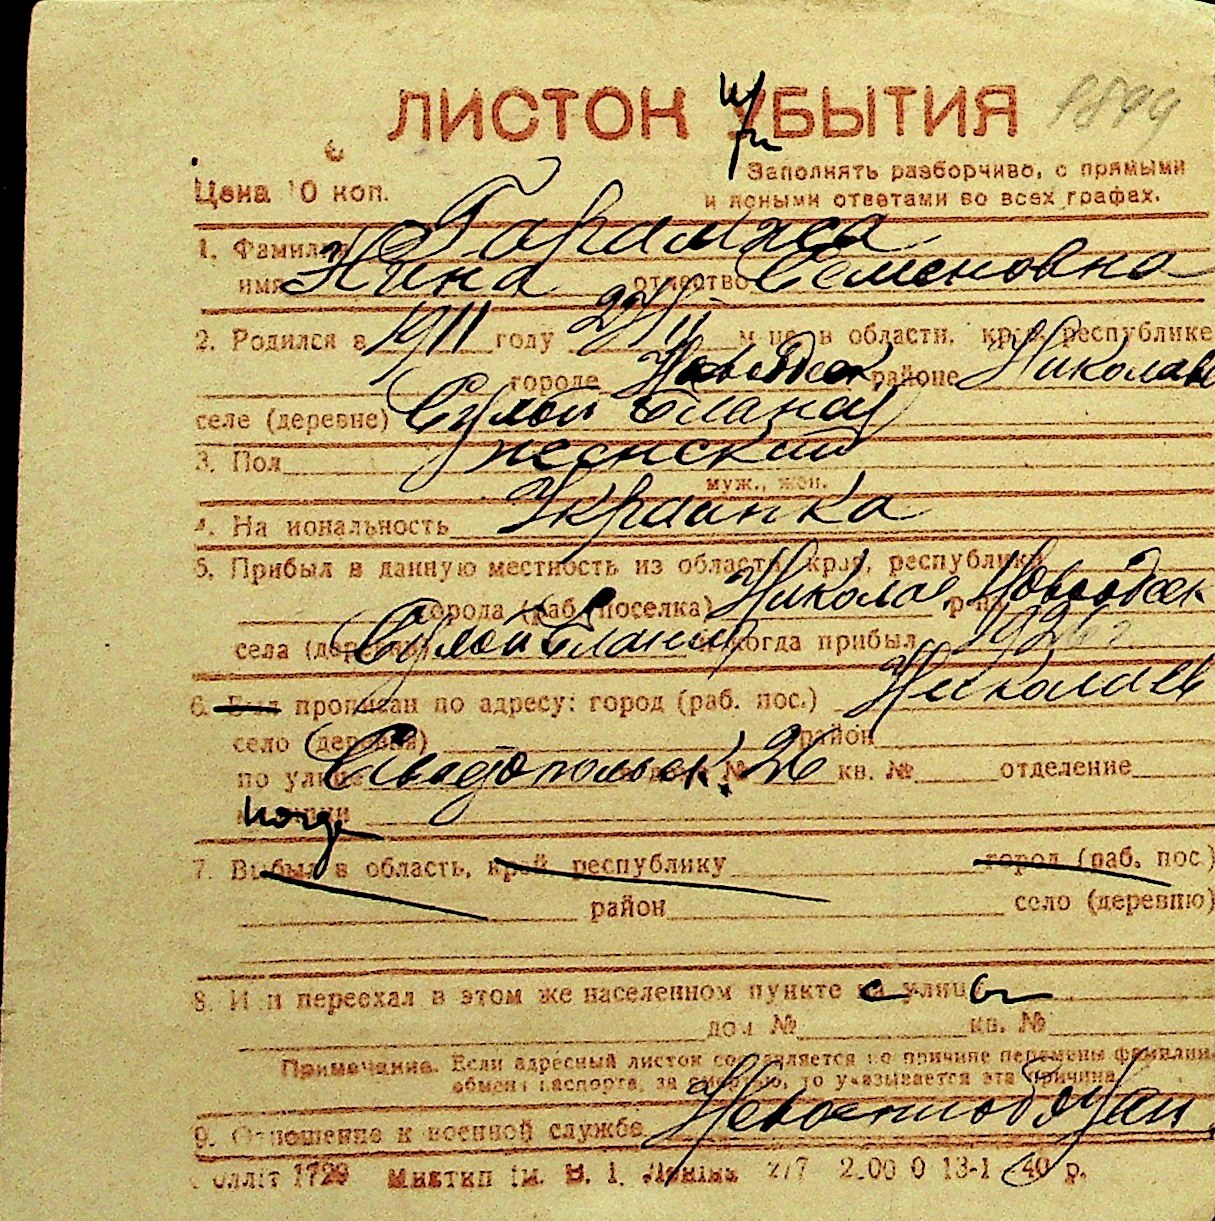 ЛИСТОК УБЫТИЯ 1899
Цена 10 коп.
Заполнять разборчиво, с прямыми
и ясными ответами во всех графах.
1. Фамилия Гарамжа
имя Нина отчество Семеновна
2. Родился в 1911 году 27/II м-це, в области, крае, республике
городе Новоодеск районе Николаев
селе (деревне) Сухой Еланец
3. Пол женский
муж., жен.
4. На иональность Украинка
5. Прибыл в данную местность из области, края, республики
города (раб. поселка) Николаев, р-на Новоодеск
села (деревни) Сухой Еланец и когда прибыл 1926 г.
6. Был прописан по адресу: город (раб. пос.) Николаев
село (деревня) район
по улице дом № 26 кв. № отделение
милиции
когда
7. Выбыл в область, край республику город (раб. пос.)
район село (деревню)
8. И и переехал в этом же населенном пункте с улицы
дом № кв. №
Примечание. Если адресный листок составляется по причине перемены фамилии,
обмена паспорта, за смертью, то указывается эта причина.
9. Отношение к военной службе Невоеннообязан.
оллiт 1729 Миктип iм. В. І. Ленiна 2/7 2.00 0 13-1 40 р.